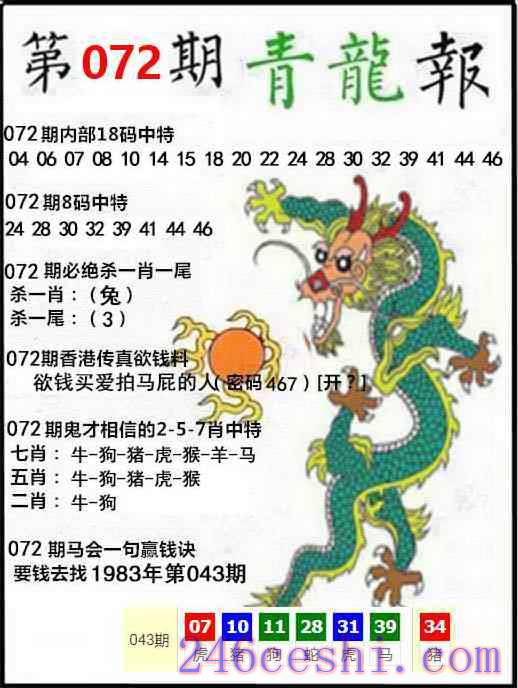 第072期 青龍報
072期内部18码中特
04 06 07 08 10 14 15 18 20 22 24 28 30 32 39 41 44 46
072期8码中特
24 28 30 32 39 41 44 46
072 期必绝杀一肖一尾
杀一肖：(兔)
杀一尾：(3)
072期香港传真欲钱料
欲钱买爱拍马屁的人(密码467)[开?]
072期鬼才相信的2-5-7肖中特
七肖：牛-狗-猪-虎-猴-羊-马
五肖：牛-狗-猪-虎-猴
二肖：牛-狗
072 期马会一句赢钱诀
要钱去找1983年第043期
043期 07 10 11 28 31 39 34
虎 猪 狗 蛇 虎 马 猪
246ceshi.com